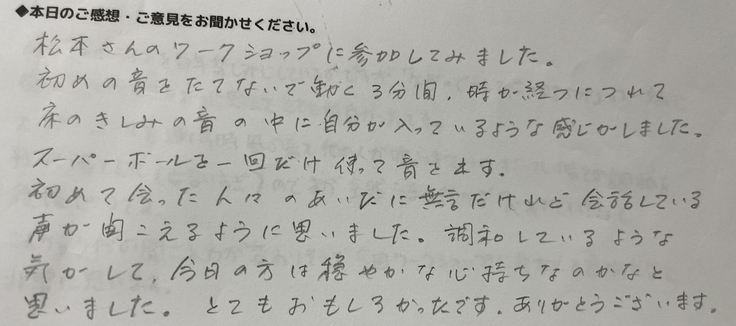 ◆本日のご感想・ご意見をお聞かせください。
松本さんのワークショップに参加してみました。
初めの音をたてないで動く3分間、時が経つにつれて
床のきしみの音の中に自分が入っているような感じがしました。
スーパーボールを一回だけ使って音を出す。
初めて会った人々のあいだに無言だけれど会話している
声が聞こえるように思いました。調和しているような
気がして、今日の方は穏やかな心持ちなのかなと
思いました。とてもおもしろかったです。ありがとうございます。